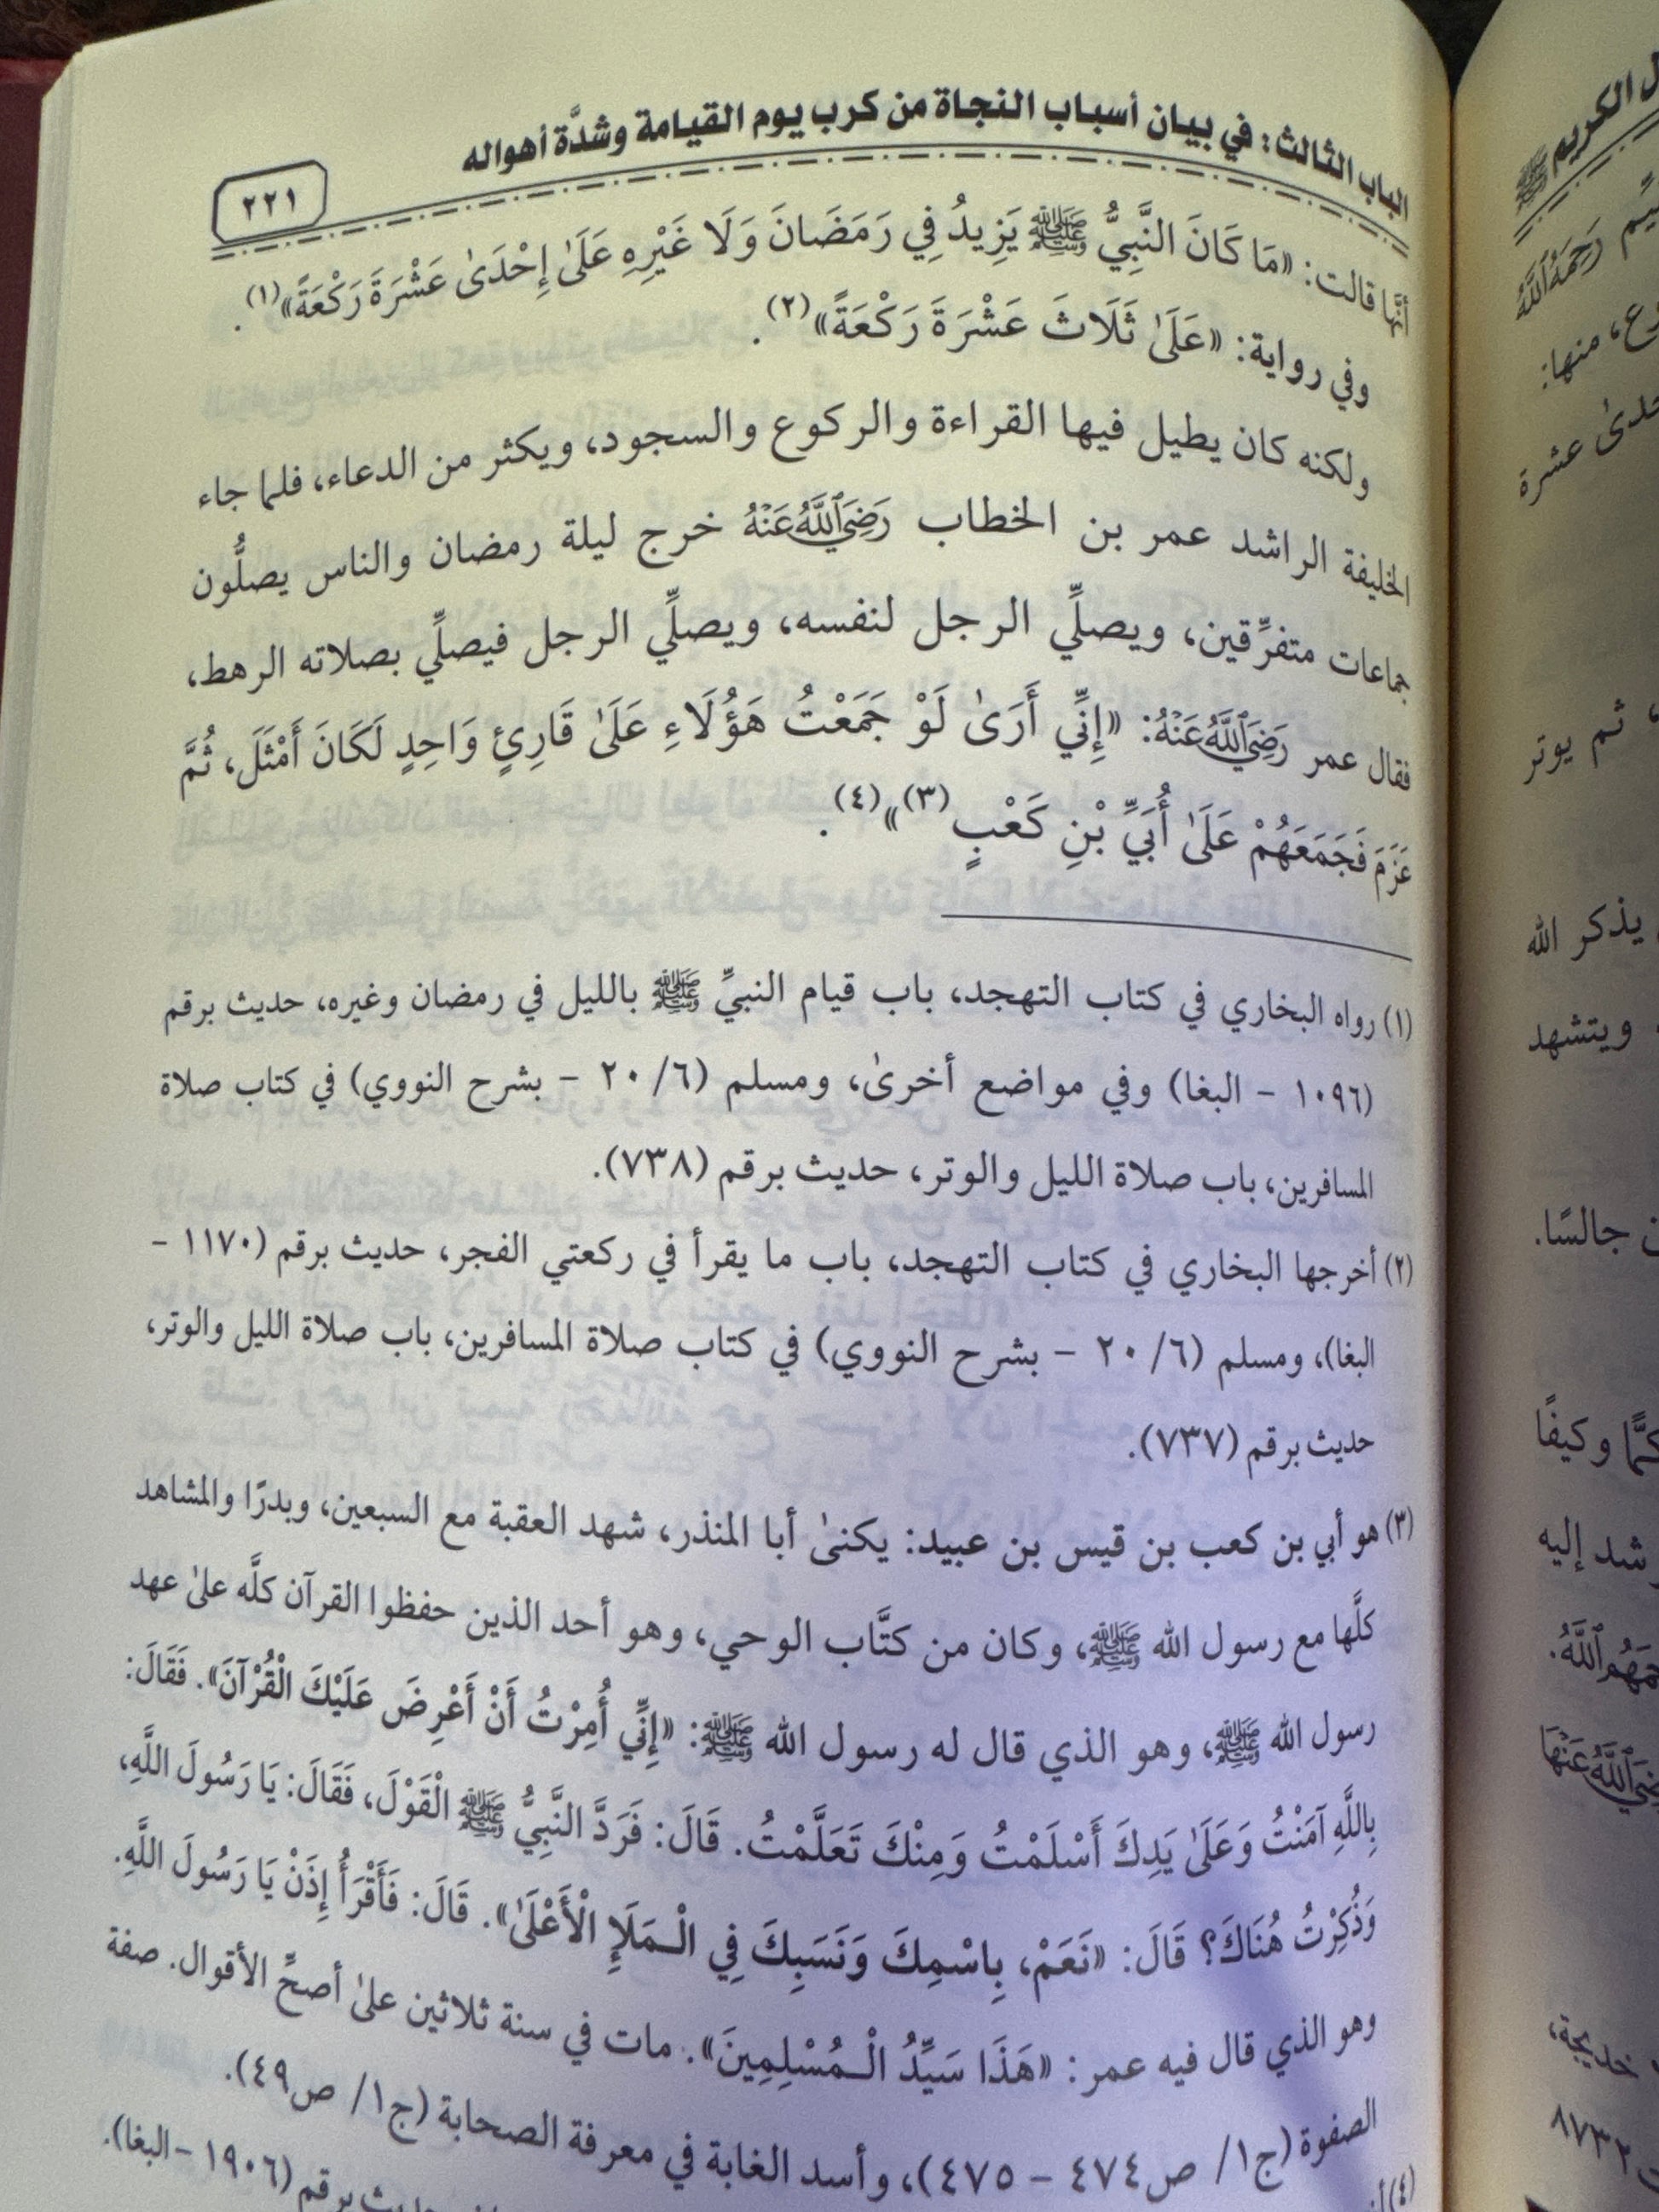 الباب الثالث: في بيان أسباب النجاة من كرب يوم القيامة وشدَّة أهواله
٢٢١
أنَّها قالت: «مَا كَانَ النَّبِيُّ ﷺ يَزِيدُ فِي رَمَضَانَ وَلَا غَيْرِهِ عَلَىٰ إِحْدَىٰ عَشْرَةَ رَكْعَةً»(١).
وفي رواية: «عَلَىٰ ثَلَاثَ عَشْرَةَ رَكْعَةً»(٢).
ولكنه كان يطيل فيها القراءة والركوع والسجود، ويكثر من الدعاء، فلما جاء
الخليفة الراشد عمر بن الخطاب رَضِيَ اللَّهُ عَنْهُ خرج ليلة رمضان والناس يصلُّون
جماعات متفرِّقين، ويصلِّي الرجل لنفسه، ويصلِّي الرجل فيصلِّي بصلاته الرهط،
فقال عمر رَضِيَ اللَّهُ عَنْهُ: «إِنِّي أَرَىٰ لَوْ جَمَعْتُ هَؤُلَاءِ عَلَىٰ قَارِئٍ وَاحِدٍ لَكَانَ أَمْثَلَ، ثُمَّ
عَزَمَ فَجَمَعَهُمْ عَلَىٰ أُبَيِّ بْنِ كَعْبٍ(٣)»(٤).
(١) رواه البخاري في كتاب التهجد، باب قيام النبيِّ ﷺ بالليل في رمضان وغيره، حديث برقم
(١٠٩٦ - البغا) وفي مواضع أخرىٰ، ومسلم (٢٠/٦ - بشرح النووي) في كتاب صلاة
المسافرين، باب صلاة الليل والوتر، حديث برقم (٧٣٨).
(٢) أخرجها البخاري في كتاب التهجد، باب ما يقرأ في ركعتي الفجر، حديث برقم (١١٧٠ -
البغا)، ومسلم (٢٠/٦ - بشرح النووي) في كتاب صلاة المسافرين، باب صلاة الليل والوتر،
حديث برقم (٧٣٧).
(٣) هو أبي بن كعب بن قيس بن عبيد: يكنىٰ أبا المنذر، شهد العقبة مع السبعين، وبدرًا والمشاهد
كلَّها مع رسول الله ﷺ، وكان من كتَّاب الوحي، وهو أحد الذين حفظوا القرآن كلَّه علىٰ عهد
رسول الله ﷺ، وهو الذي قال له رسول الله ﷺ: «إِنِّي أُمِرْتُ أَنْ أَعْرِضَ عَلَيْكَ الْقُرْآنَ». فَقَالَ:
بِاللَّهِ آمَنْتُ وَعَلَىٰ يَدِكَ أَسْلَمْتُ وَمِنْكَ تَعَلَّمْتُ. قَالَ: فَرَدَّ النَّبِيُّ ﷺ الْقَوْلَ، فَقَالَ: يَا رَسُولَ اللَّهِ،
وَذُكِرْتُ هُنَاكَ؟ قَالَ: «نَعَمْ، بِاسْمِكَ وَنَسَبِكَ فِي الْـمَلَإِ الْأَعْلَىٰ». قَالَ: فَأَقْرَأُ إِذَنْ يَا رَسُولَ اللَّهِ.
وهو الذي قال فيه عمر: «هَذَا سَيِّدُ الْـمُسْلِمِينَ». مات في سنة ثلاثين علىٰ أصحِّ الأقوال. صفة
الصفوة (ج١/ ص٤٧٤ - ٤٧٥)، وأسد الغابة في معرفة الصحابة (ج١/ ص٤٩).
(٤) حديث برقم (١٩٠٦ - البغا).
الكريم ﷺ
رَحِمَهُ اللَّهُ
منها:
عشرة
ثم يوتر
يذكر الله
ويتشهد
جالسًا.
وكيفًا
إليه
خديجة،